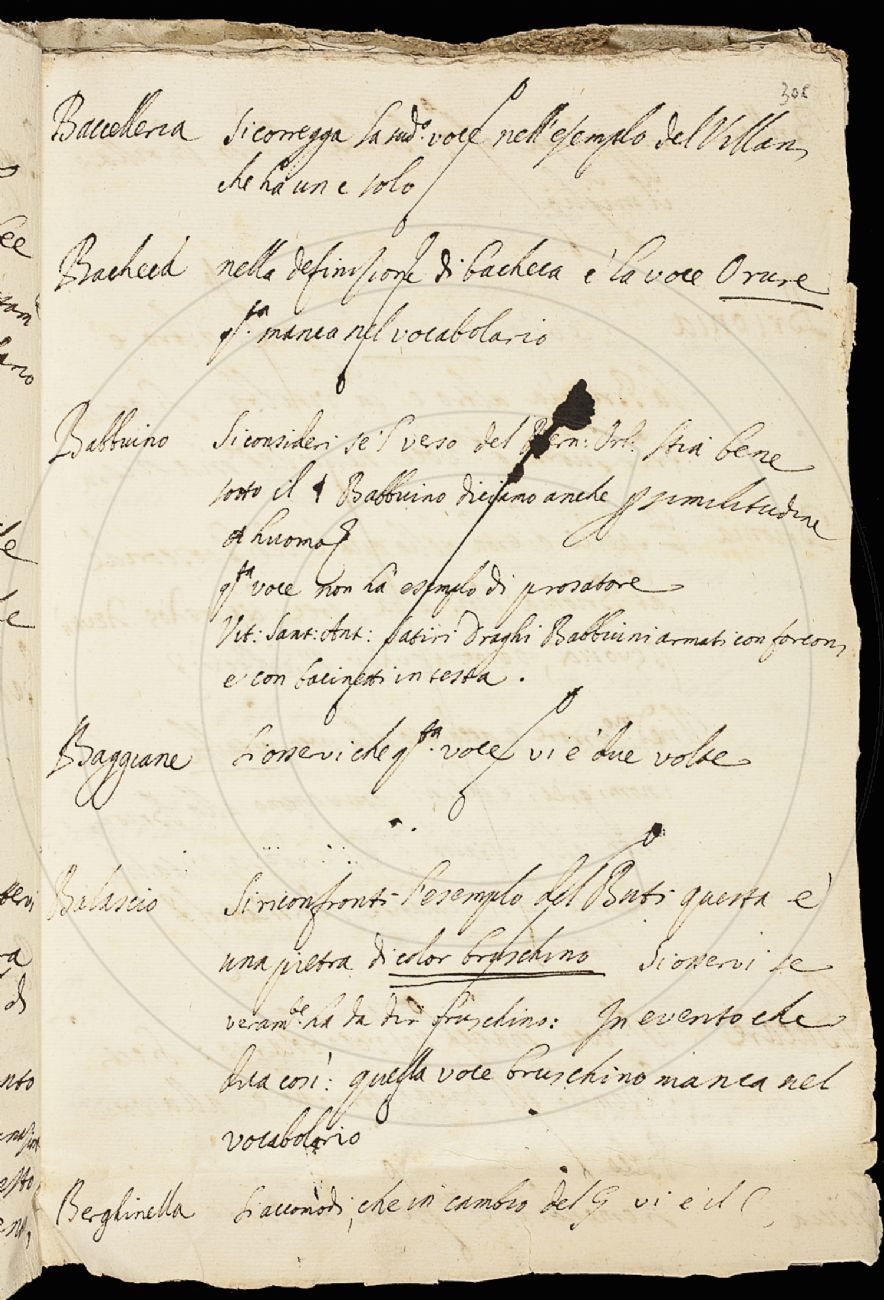 302
Baccelleria Si corregga la sud.ª voce nell'esempio del Villan,
che hà un c solo
Bacheca nella definizione di bacheca è la voce Orure
q.ta manca nel vocabolario
Babbuino Si consideri se'l verso del Bern: Orl: stia bene
sotto il Babbuino diciamo anche p similitudine
huomo
q.ta voce non hà esemplo di prosatore
Vit: Sant: Ant: Satiri Draghi Babbuini armati con forcon,
e con bacinetti in testa.
Baggiane Si osservi che q.ta voce vi è due volte
Balascio Si riconfronti l'esemplo del Buti questa è
una pietra di color bruschino Si osservi se
veram.te hà da dir fruschino: In evento che
dica così: quella voce bruschino manca nel
vocabolario
Berghinella Si accomodi, che in cambio del G vi è il C,